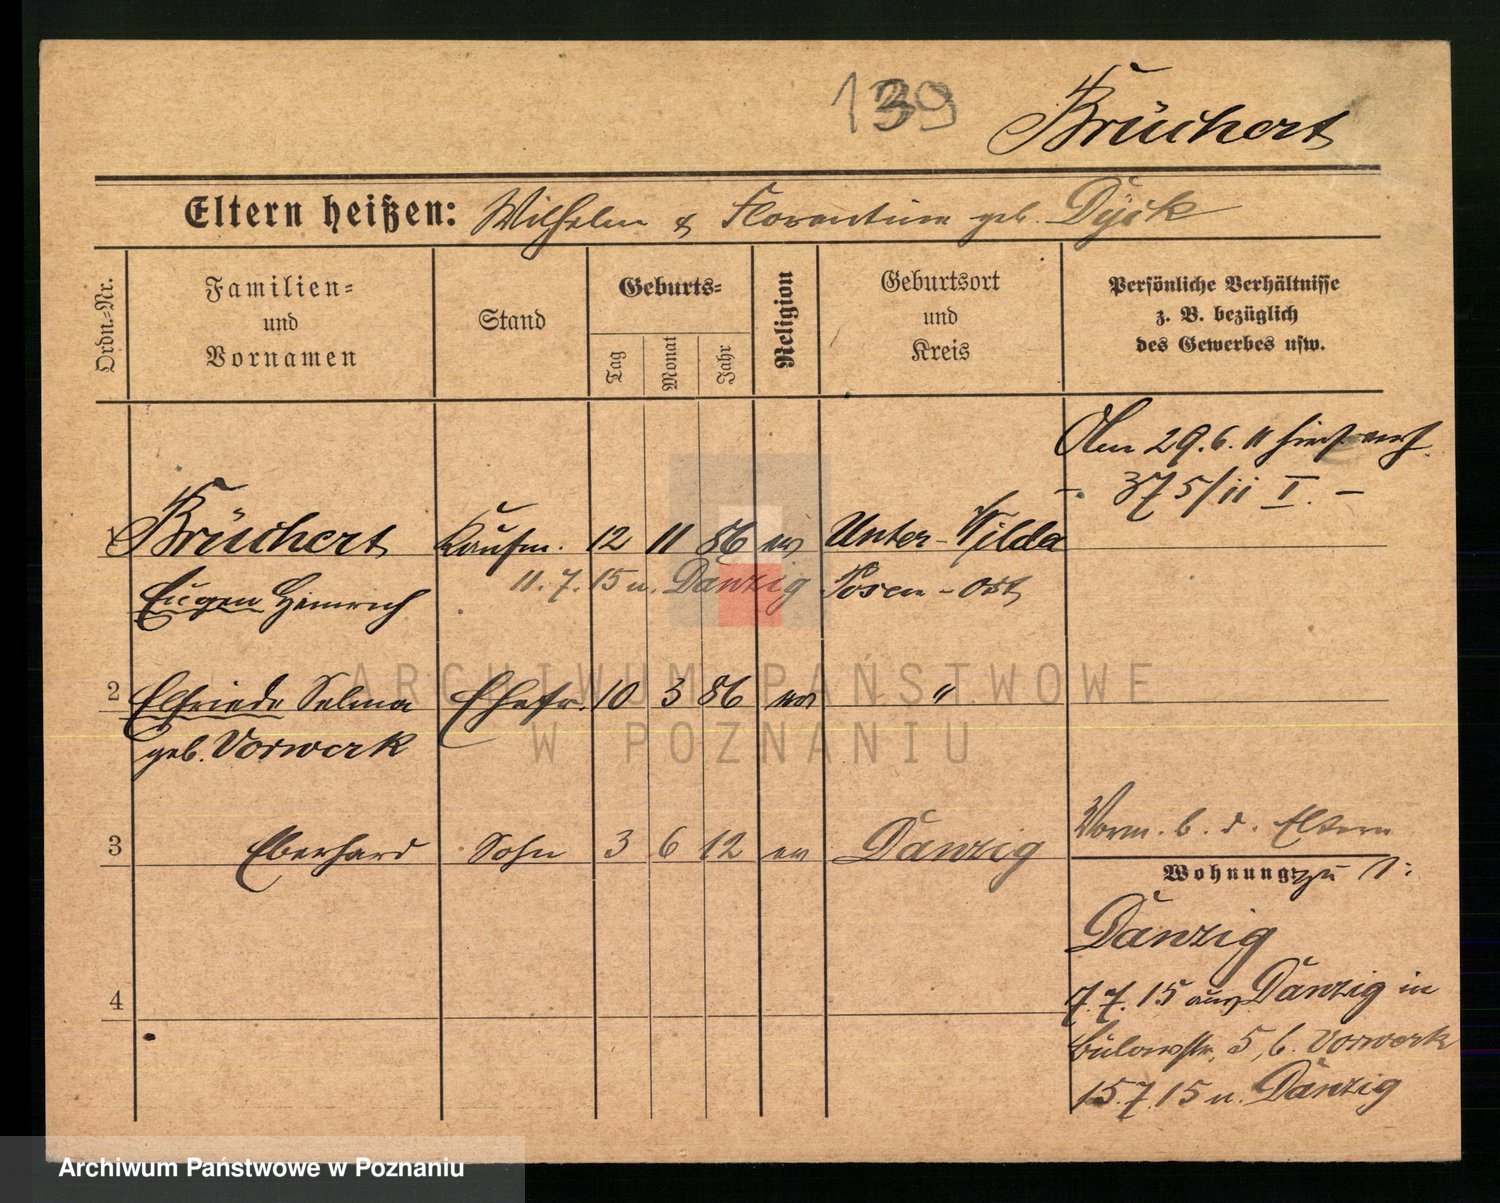 139
Brüchert
Eltern heißen: Wilhelm & Florentine geb. Dyck
Ordn.-Nr.
Familien-
und
Vornamen
Stand
Geburts-
Tag
Monat
Jahr
Religion
Geburtsort
und
Kreis
Persönliche Verhältnisse
z. B. bezüglich
des Gewerbes usw.
Am 29.6.11 hier verh.
- 375/11 I. -
1 Brüchert Kaufm. 12 11 86 ev Unter-Wilda
Eugen Heinrich 11.7.15 n. Danzig Posen-Ost
2 Elfriede Selma Ehefr. 10 3 86 ev "
geb. Vorwerk
3 Eberhard Sohn 3 6 12 ev Danzig
Vorm. b. d. Eltern
Wohnung zu 1:
Danzig
4
7.7.15 aus Danzig in
Bülowstr. 5, b. Vorwerk
15.7.15 n. Danzig
ARCHIWUM PAŃSTWOWE
W POZNANIU
Archiwum Państwowe w Poznaniu